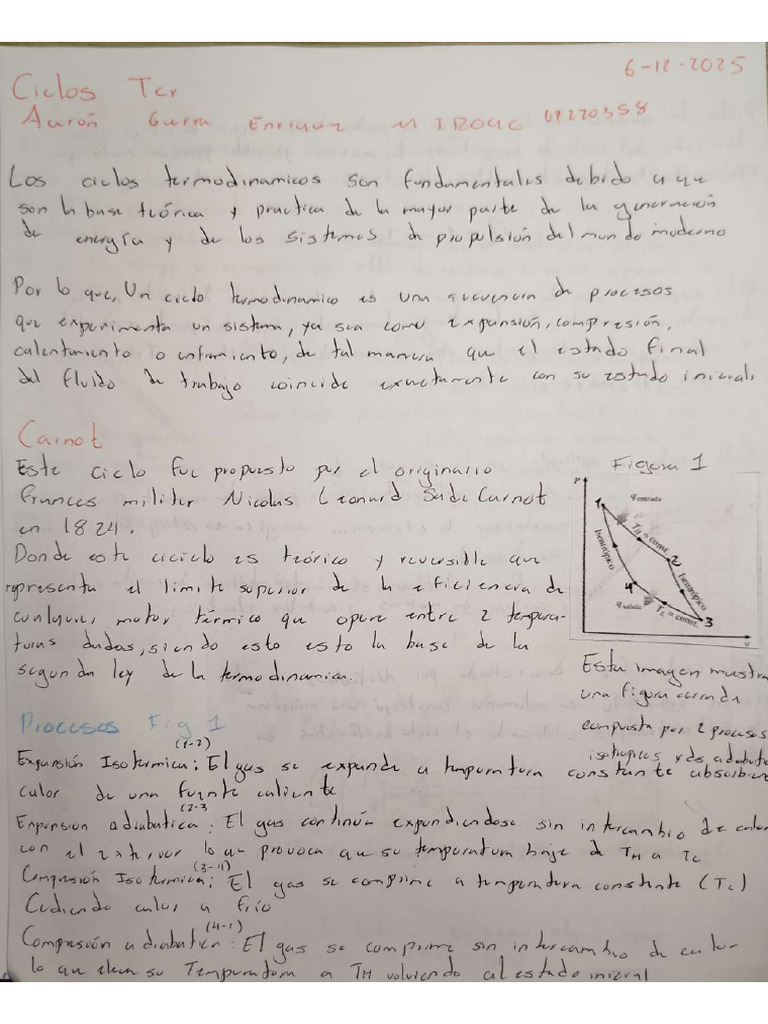 6-12-2025
Ciclos Ter
Aarón Guerra Enriquez MTROUC UP220358
Los ciclos termodinamicos son fundamentales debido a que
son la base teórica y practica de la mayor parte de la generación
de energía y de los sistemas de propulsión del mundo moderno
Por lo que, Un ciclo termodinamico es una secuencia de procesos
que experimenta un sistema, ya sea como expansión, compresión,
calentamiento o enfriamiento, de tal manera que el estado final
del fluido de trabajo coincide exactamente con su estado inicial.
Carnot
Este ciclo fue propuesto por el originario
frances militar Nicolas Leonard Sadi Carnot
en 1824.
Donde este ciclo es teórico y reversible que
representa el limite superior de la eficiencia de
cualquier motor térmico que opere entre 2 tempera-
turas dadas, siendo esto esto la base de la
segunda ley de la termodinamica.
Figura 1
P
1
q entrada
TH = const.
2
Isentrópico
Isentrópico
4
q salida
TL = const.
3
v
Esta imagen muestra
una figura cerrada
compuesta por 2 procesos
isotropicos y dos adiabati
Procesos Fig 1
(1-2)
Expansión Isotermica: El gas se expande a temperatura constante absorbien
calor de una fuente caliente
(2-3
Expansion adiabatica: El gas continúa expandiendose sin intercambio de calor
con el exterior lo que provoca que su temperatura baje de TH a Tc
(3-4)
Compresión Isotermica: El gas se comprime a temperatura constante (Tc)
Cediendo calor a frío
(4-1)
Compresión adiabatica: El gas se comprime sin intercambio de calo-
lo que eleva su Temperatura a TH volviendo al estado inicial